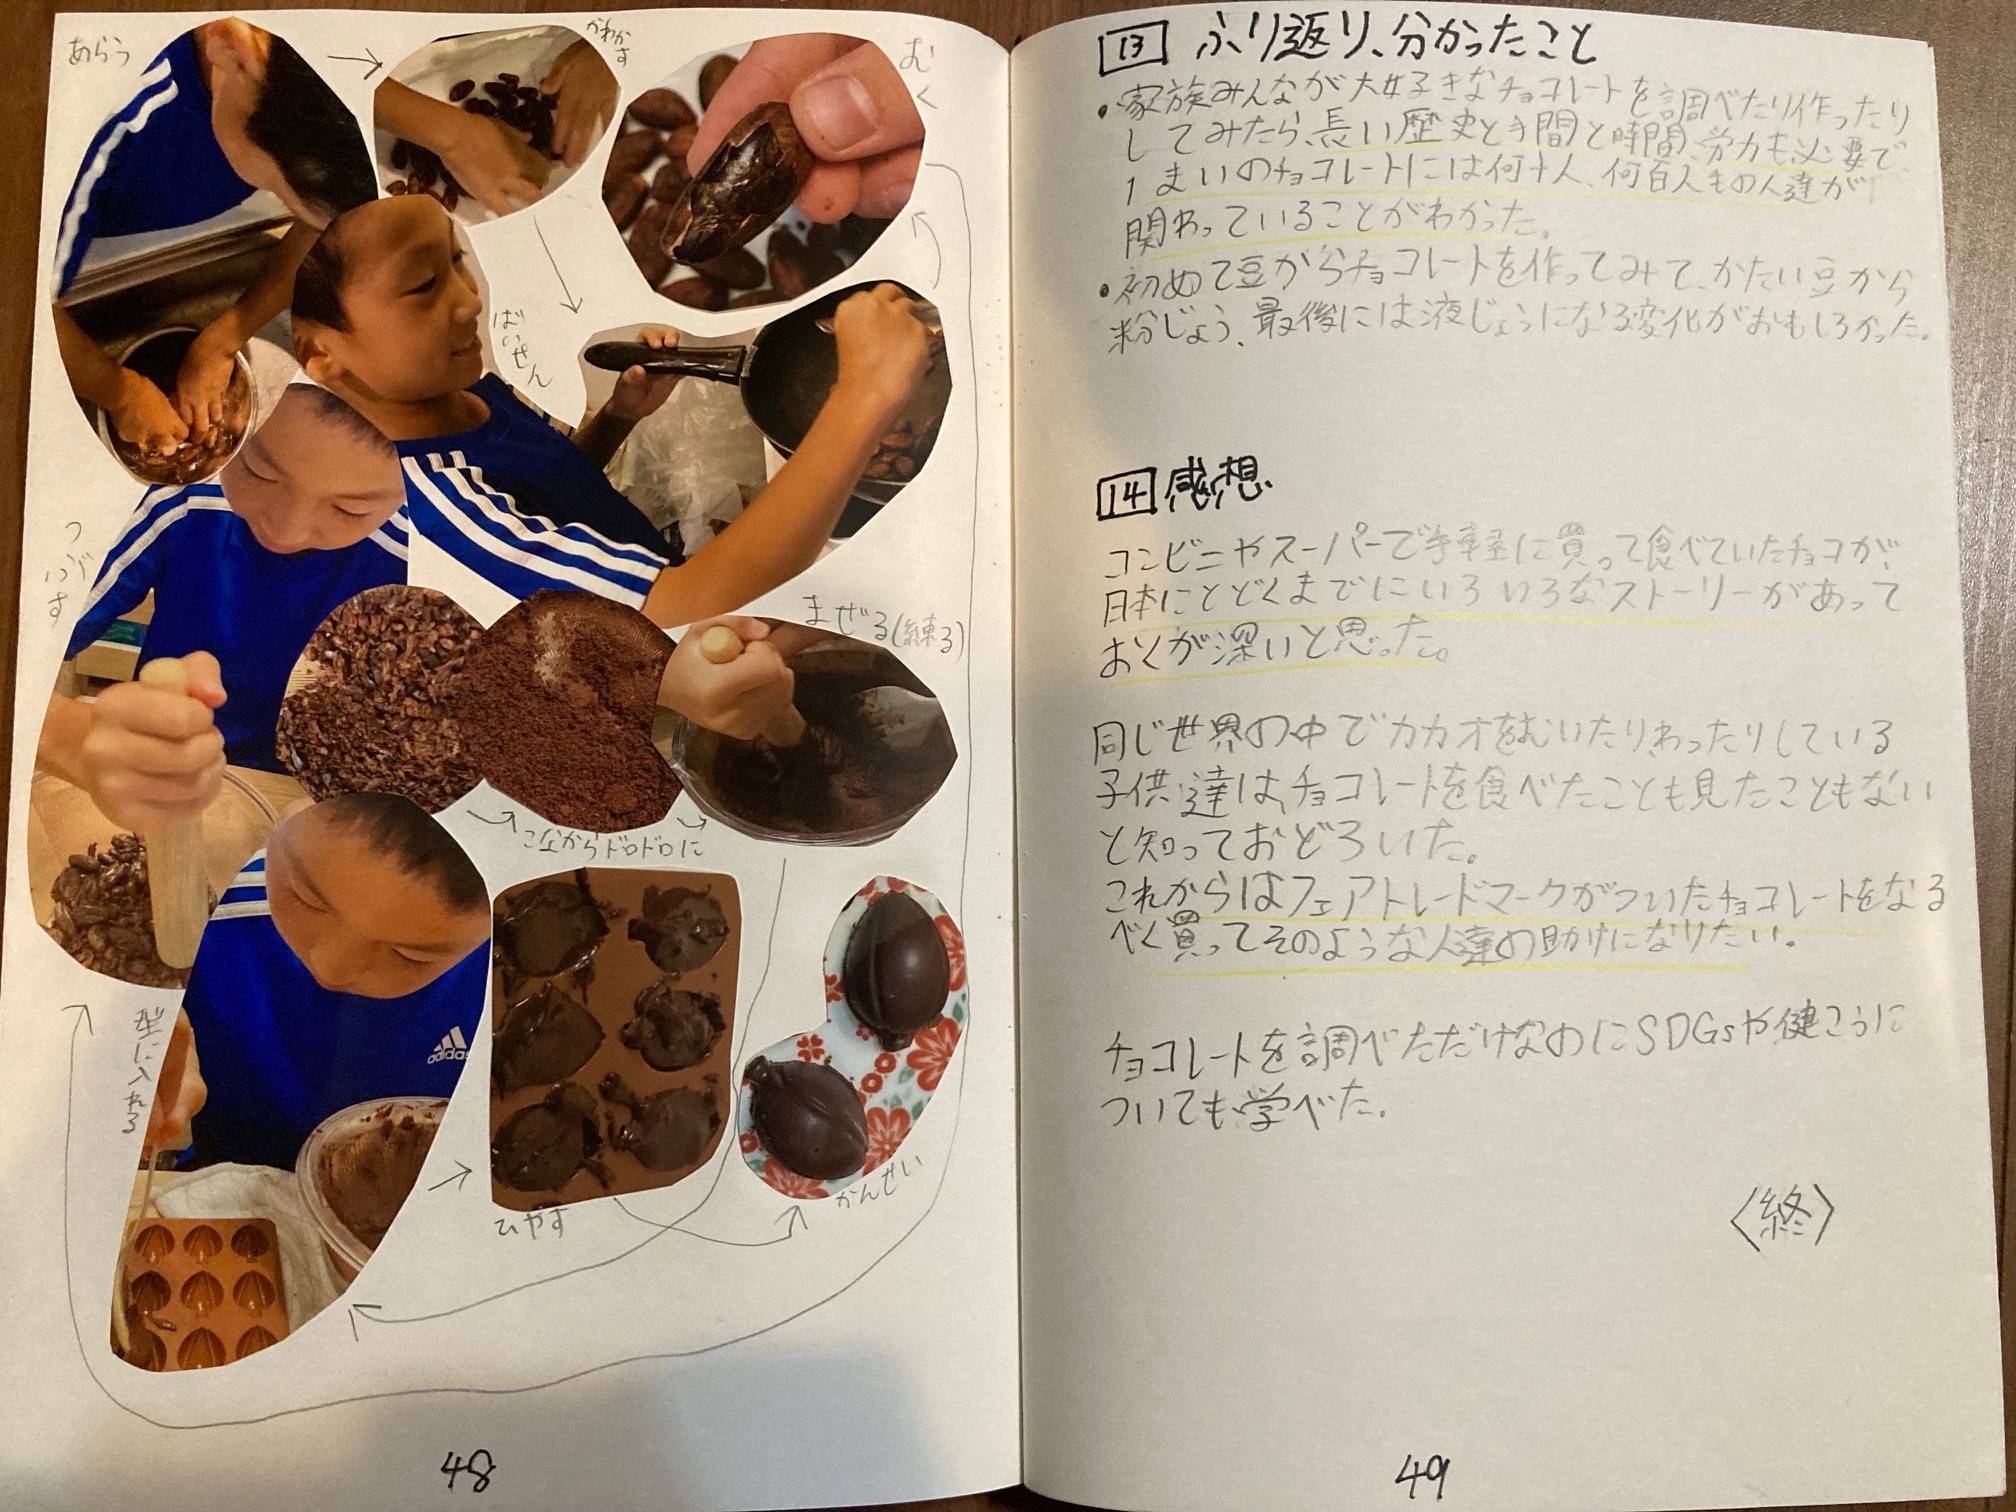 あらう
かわかす
むく
ばいせん
つぶす
まぜる(練る)
こなからドロドロに
型に入れる
adidas
ひやす
かんせい
48
13 ふり返り、分かったこと
・家族みんなが大好きなチョコレートを調べたり作ったり
してみたら、長い歴史と手間と時間、労力も必要で、
1まいのチョコレートには何十人、何百人もの人達が
関わっていることがわかった。
・初めて豆からチョコレートを作ってみて、かたい豆から
粉じょう、最後には液じょうになる変化がおもしろかった。
14 感想
コンビニやスーパーで手軽に買って食べていたチョコが、
日本にとどくまでにいろいろなストーリーがあって
おくが深いと思った。
同じ世界の中でカカオをむいたり、わったりしている
子供達は、チョコレートを食べたことも見たこともない
と知っておどろいた。
これからはフェアトレードマークがついたチョコレートをなる
べく買ってそのような人達の助けになりたい。
チョコレートを調べただけなのにSDGsや健こうに
ついても、学べた。
〈終〉
49